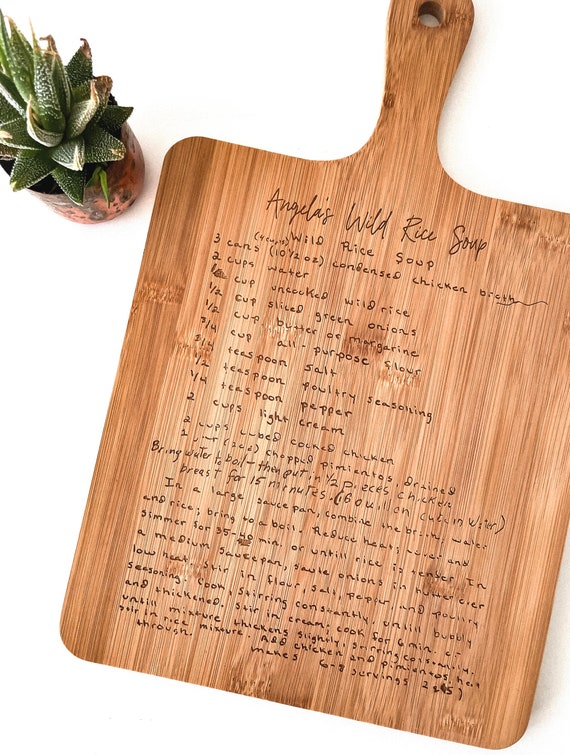 Angela's Wild Rice Soup
(4 cups) Wild Rice Soup
3 cans (10 1/2 oz) condensed chicken broth
2 cups water
cup uncooked wild rice
1/2 cup sliced green onions
1/2 cup butter or margarine
3/4 cup all-purpose flour
1/2 teaspoon salt
1/2 teaspoon poultry seasoning
1/4 teaspoon pepper
2 cups light cream
2 cups cubed cooked chicken
1 jar (2 oz) chopped pimientos, drained
Bring water to boil - then put in 1/2 pieces chicken
breast for 15 minutes. (Bouillon cube in water)
In a large saucepan, combine the broth, water
and rice; bring to a boil. Reduce heat; cover and
simmer for 35- min. or untill rice is tender. In
a medium saucepan, saute onions in butter over
low heat. Stir in flour, salt, pepper, and poultry
seasoning. Cook, stirring constantly, untill bubbly
and thickened. Stir in cream; cook for 6 min. or
untill mixture thickens slightly, stirring constantly.
Stir in rice mixture. Add chicken and pimientos; heat
through. makes 6-8 servings